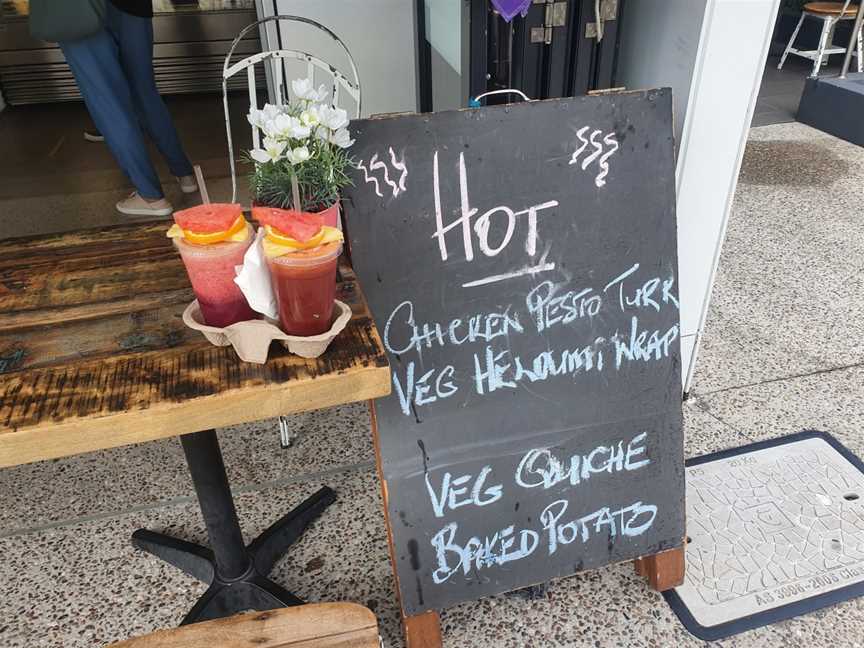 Hot
Chicken Pesto Turk
Veg Heloumi Wrap
Veg Quiche
Baked Potato
AS 3996-2006 Cla